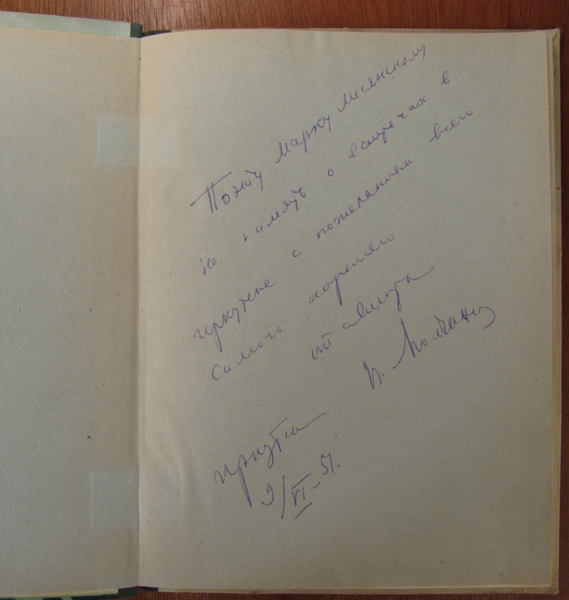 Поэту Марку Лисянскому
на память о встречах в
Иркутске с пожеланием всего
самого хорошего
от автора
Иркутск
9/VI–51.